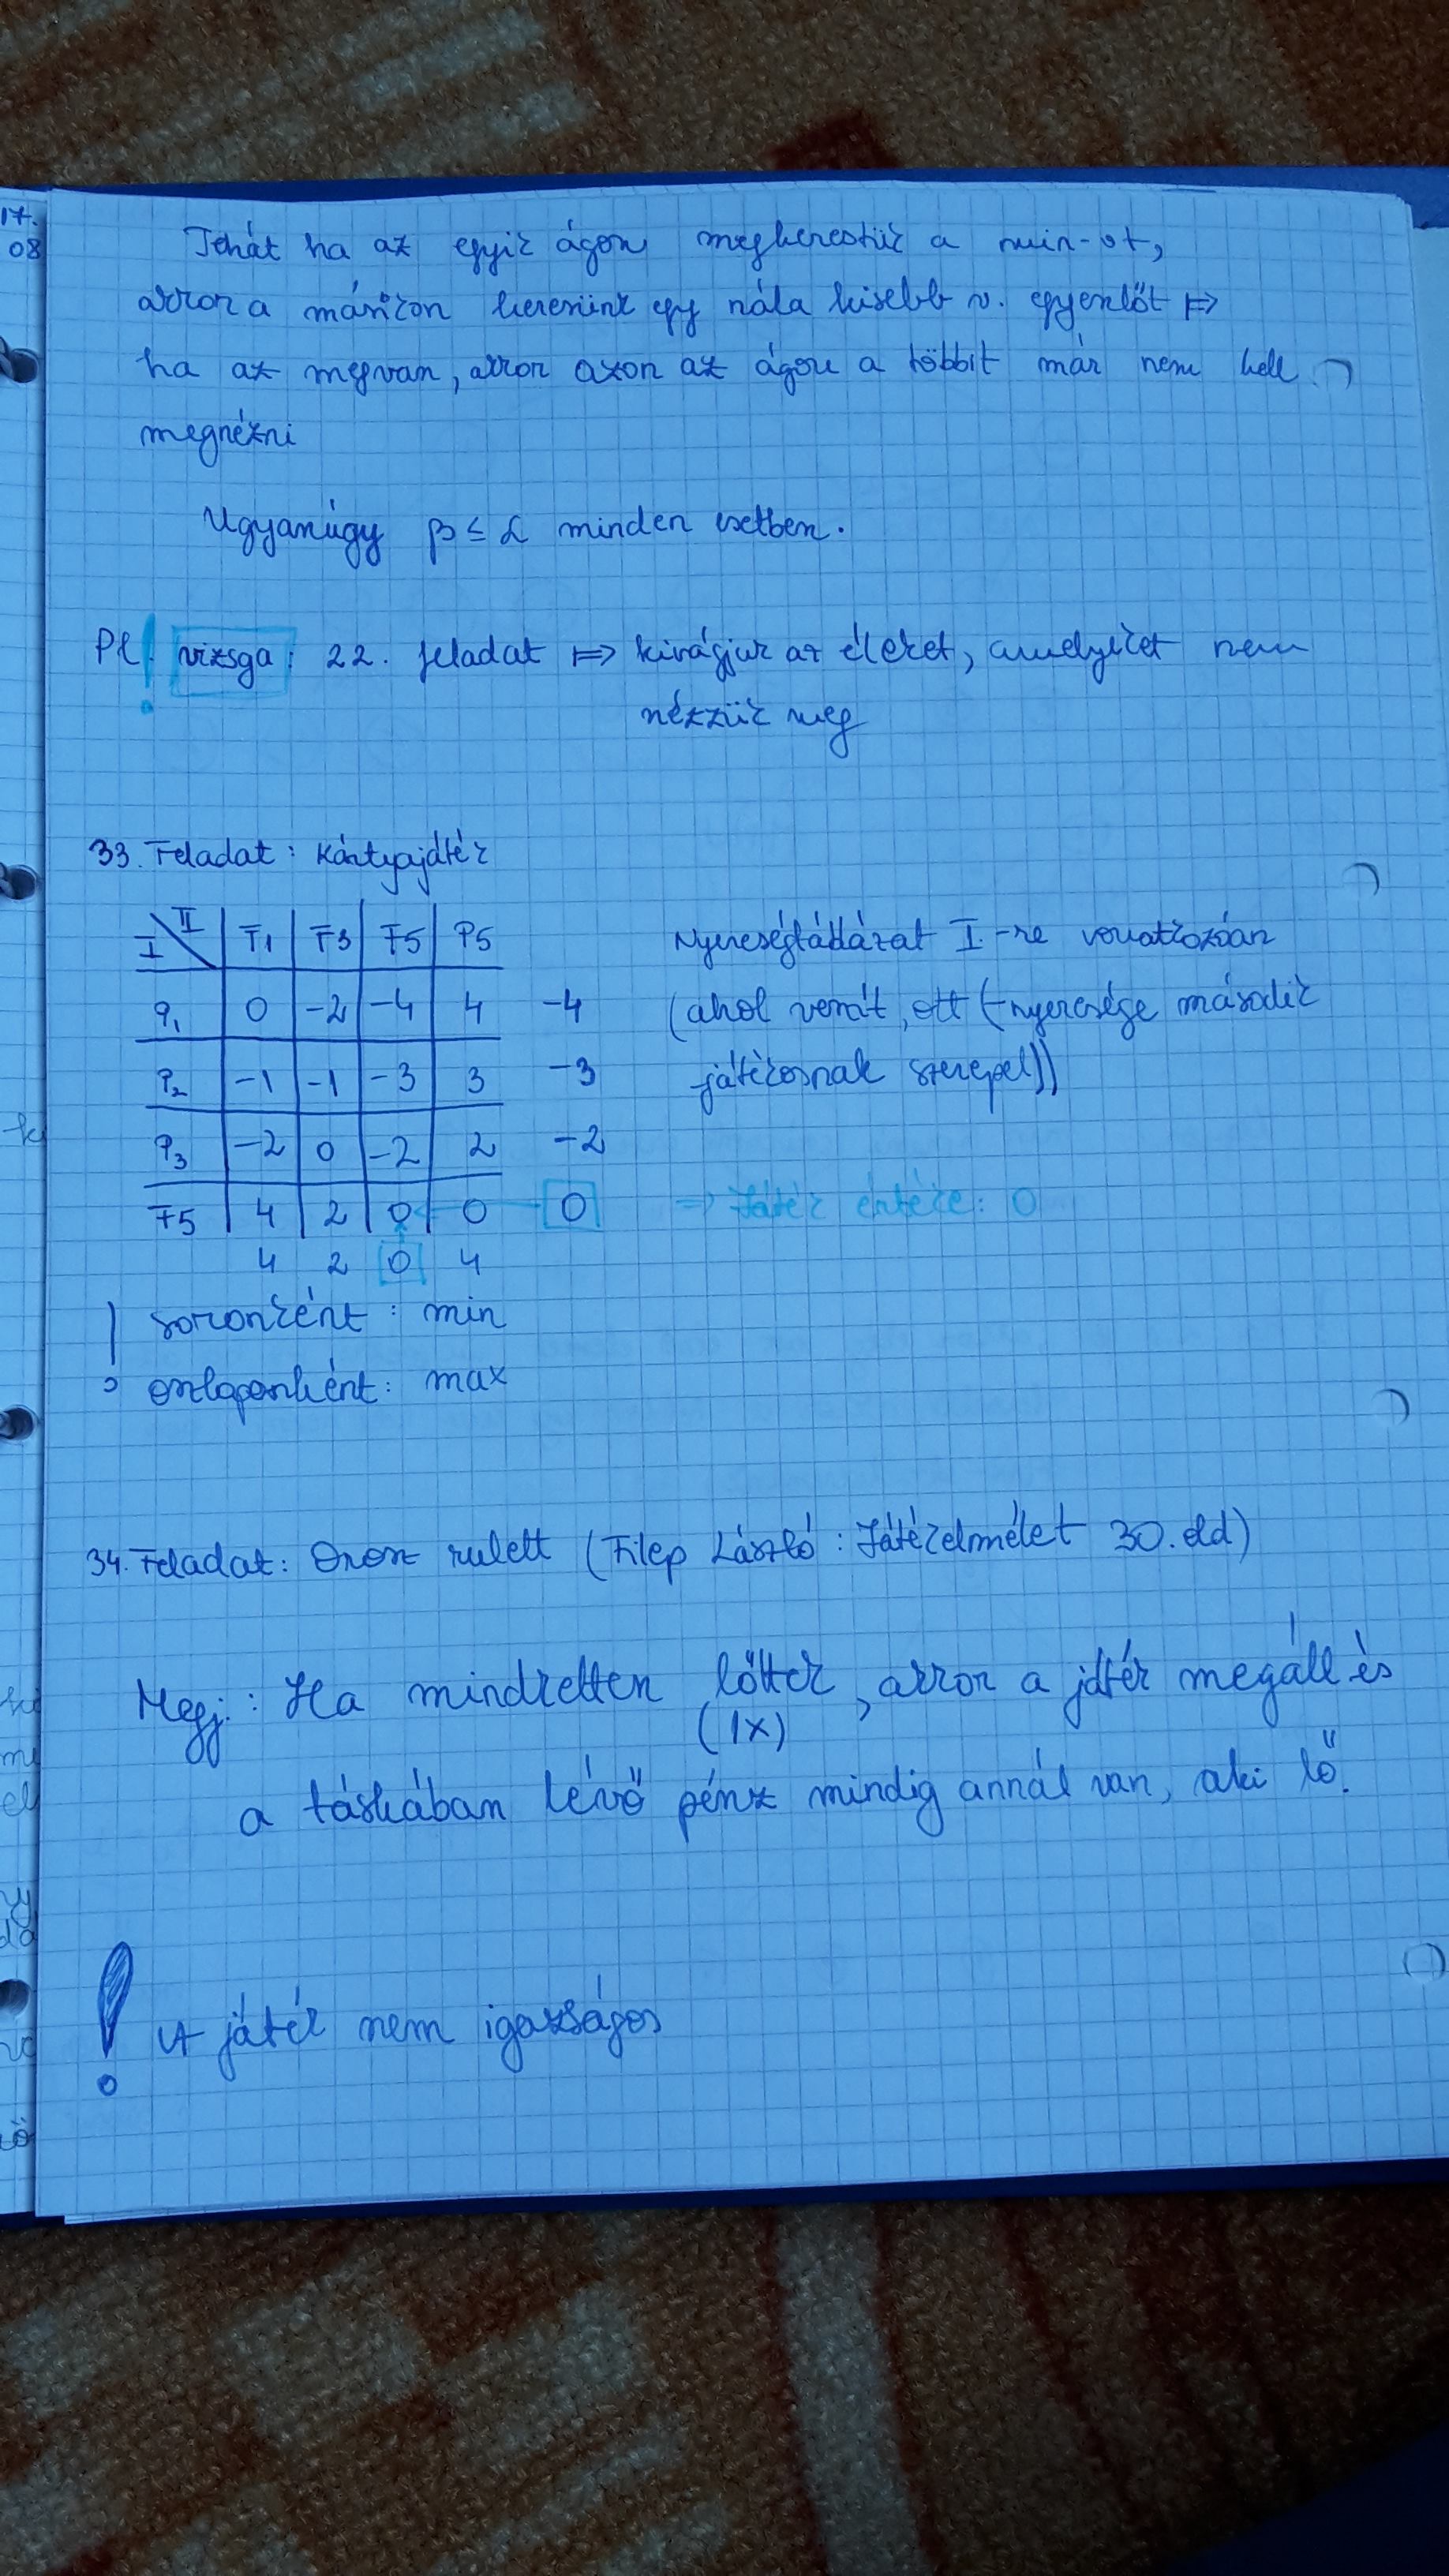 17.
08
Tehát ha az egyik ágon megkerestük a min-ot,
akkor a másikon keresünk egy nála kisebb v. egyenlőt ⊨>
ha az megvan, akkor azon az ágon a többit már nem kell
megnézni
Ugyanúgy β ≤ α minden esetben.
Pl! vizsga: 22. feladat ⊨> kivágjuk az éleket, amelyeket nem
nézzük meg
33. Feladat: Kártyajáték
I \ II | F1 | F3 | F5 | P5
P1 | 0 | -2 | -4 | 4 -4
P2 | -1 | -1 | -3 | 3 -3
P3 | -2 | 0 | -2 | 2 -2
F5 | 4 | 2 | 0 | 0 0 => Játék értéke: 0
4 2 0 4
Nyereségtáblázat I.-re vonatkozóan
(ahol veszít, ott (-nyeresége második
játékosnak szerepel))
! soronként: min
oszloponként: max
34. Feladat: Orosz rulett (Filep László: Játékelmélet 30. old)
Megj.: Ha mindketten lőttek, akkor a játék megáll és
(1x)
a táskában lévő pénz mindig annál van, aki lő.
! A játék nem igazságos